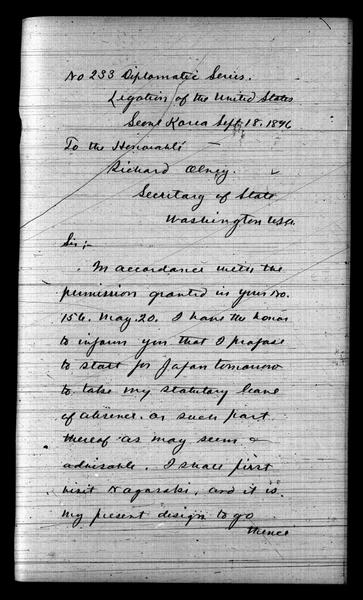 No 233 Diplomatic Series.
Legation of the United States
Seoul Korea Sept. 18. 1896
To the Honorable
Richard Olney.
Secretary of State
Washington U.S.A.
Sir:-
In accordance with the
permission granted in your No.
156. May. 20. I have the honor
to inform you that I propose
to start for Japan tomorrow
to take my statutory leave
of absence. or such part
thereof as may seem
advisable. I shall first
visit Nagasaki, and it is
my present design to go
thence